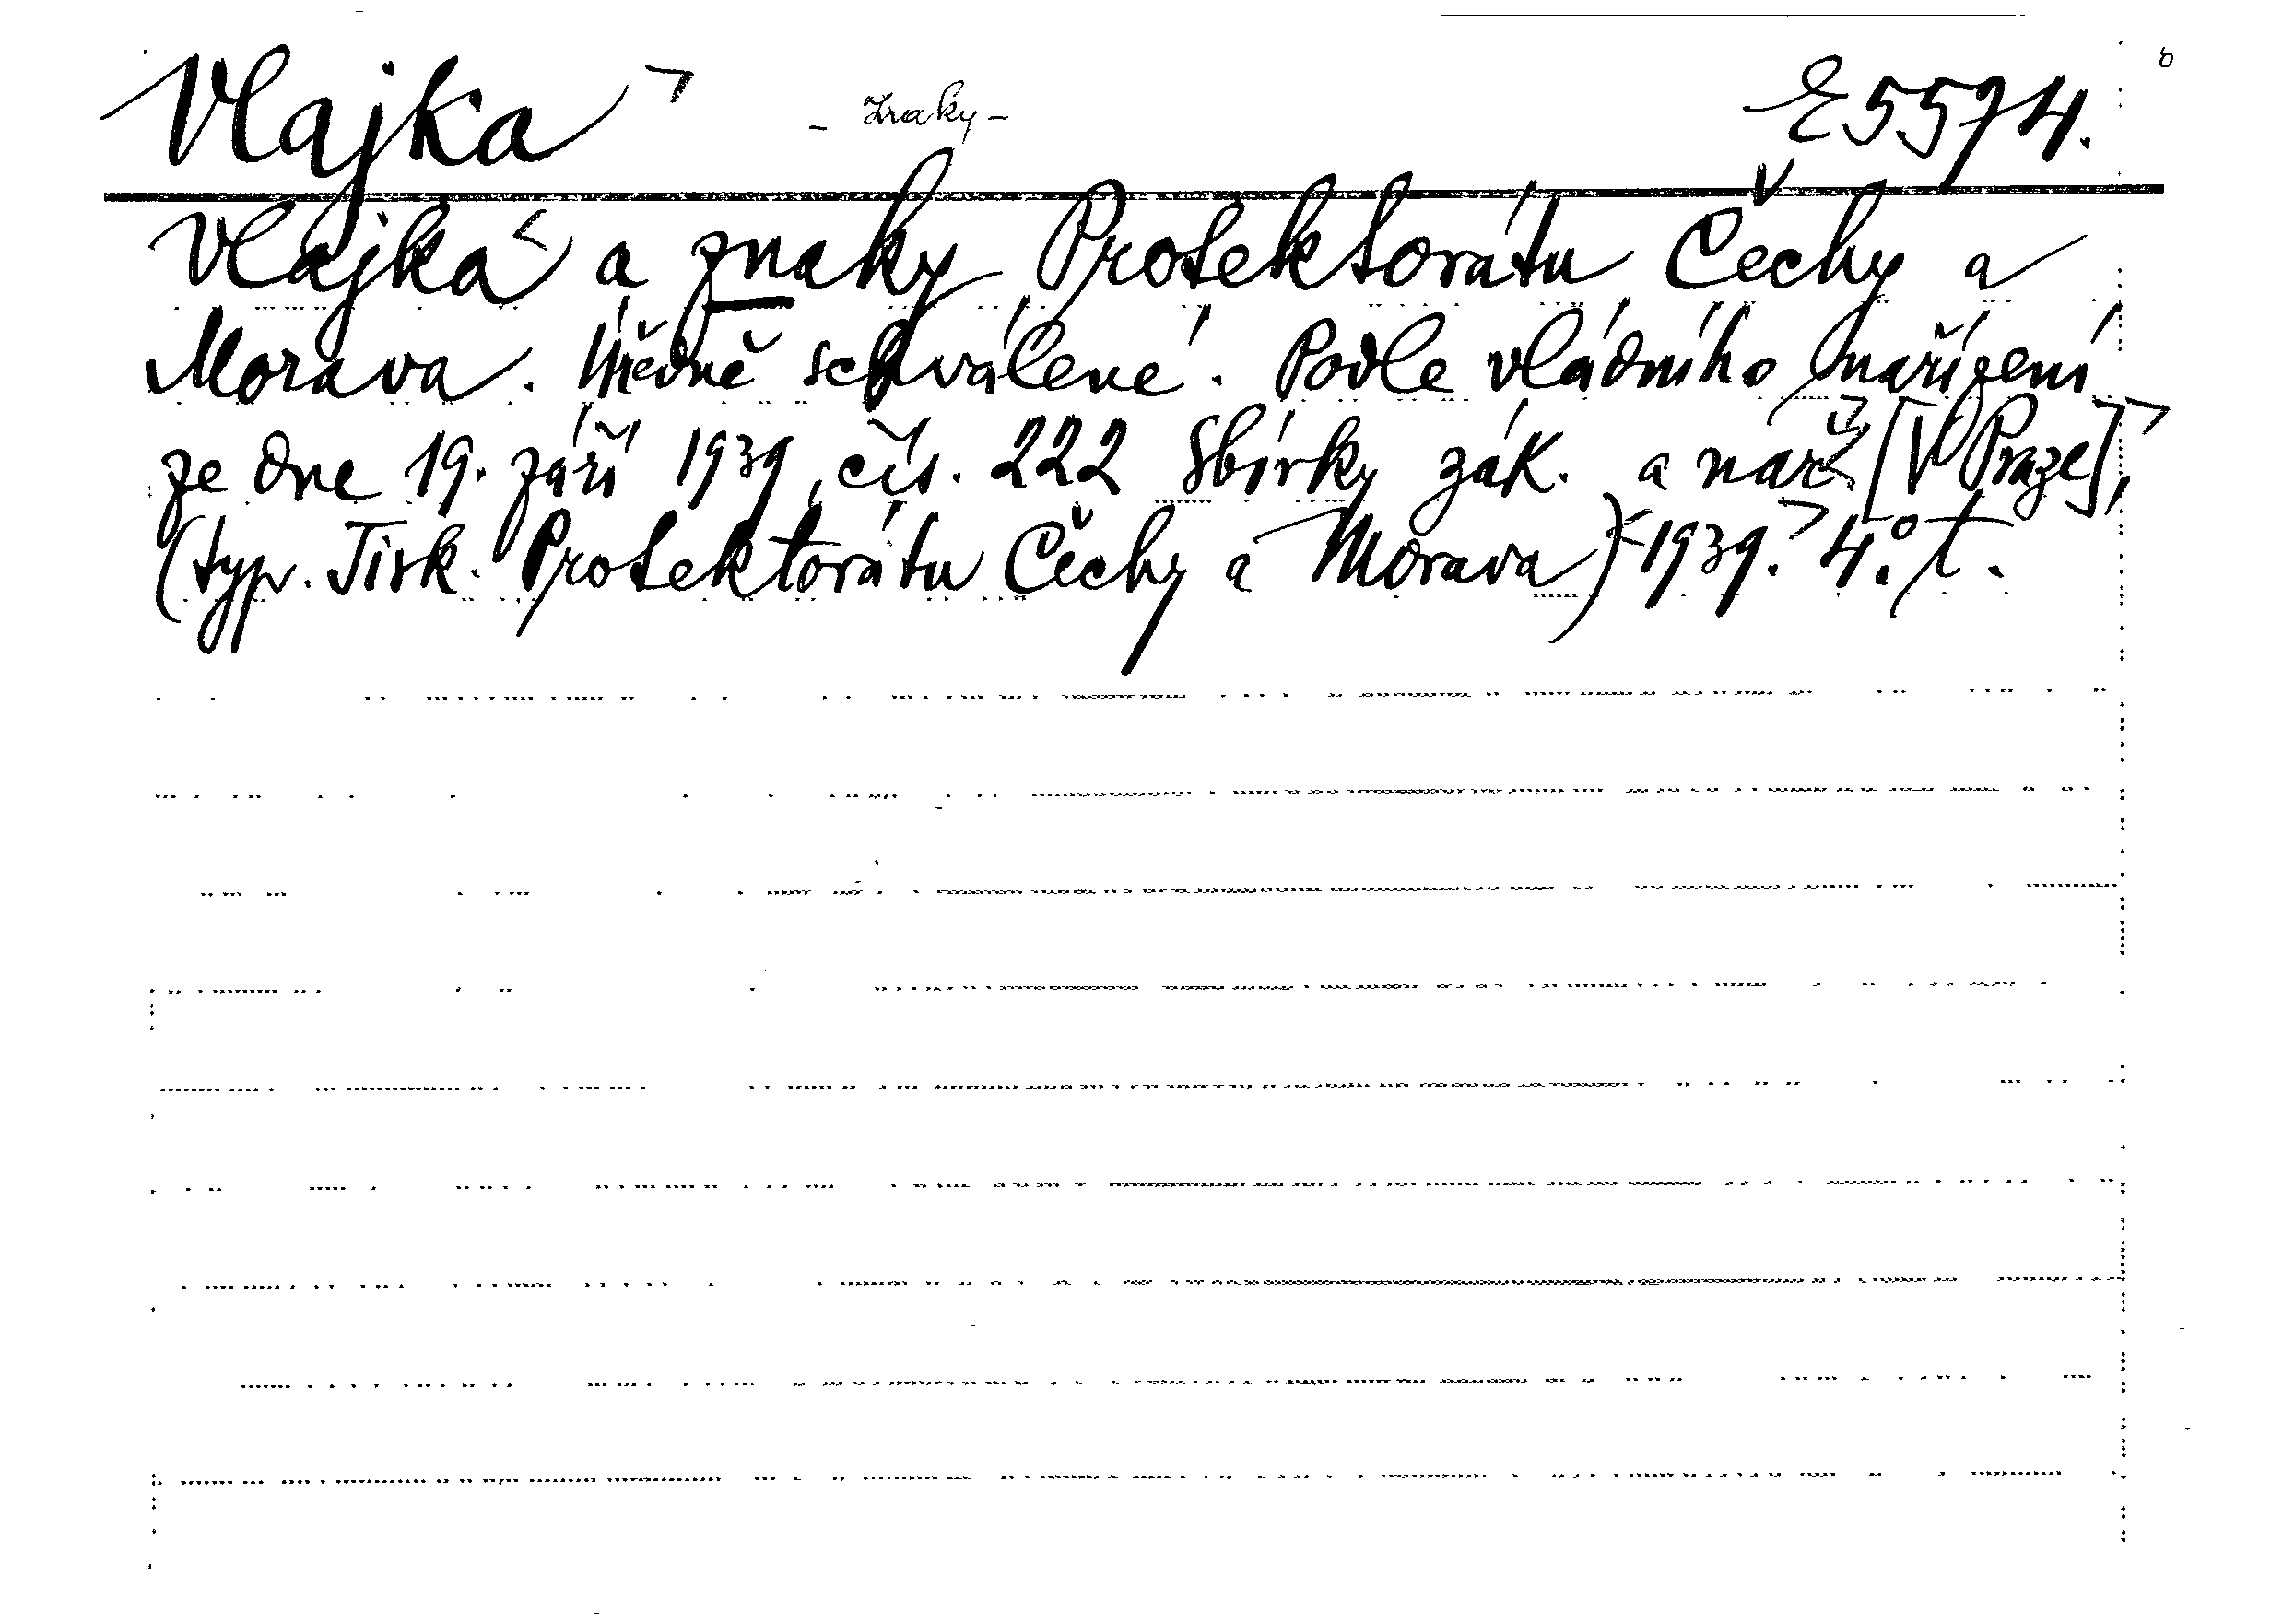 Vlajka - znaky - E 5574.
Vlajka a znaky Protektorátu Čechy a
Morava. Úředně schválené. Podle vládního nařízení
ze dne 19. září 1939, čís. 222 Sbírky zák. a nař. [V Praze],
(typ. Tisk. Protektorátu Čechy a Morava) 1939. 4°. t.